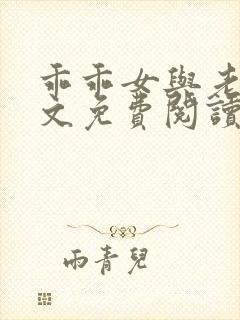 乖乖女與老
文免費閱讀
雨青兒